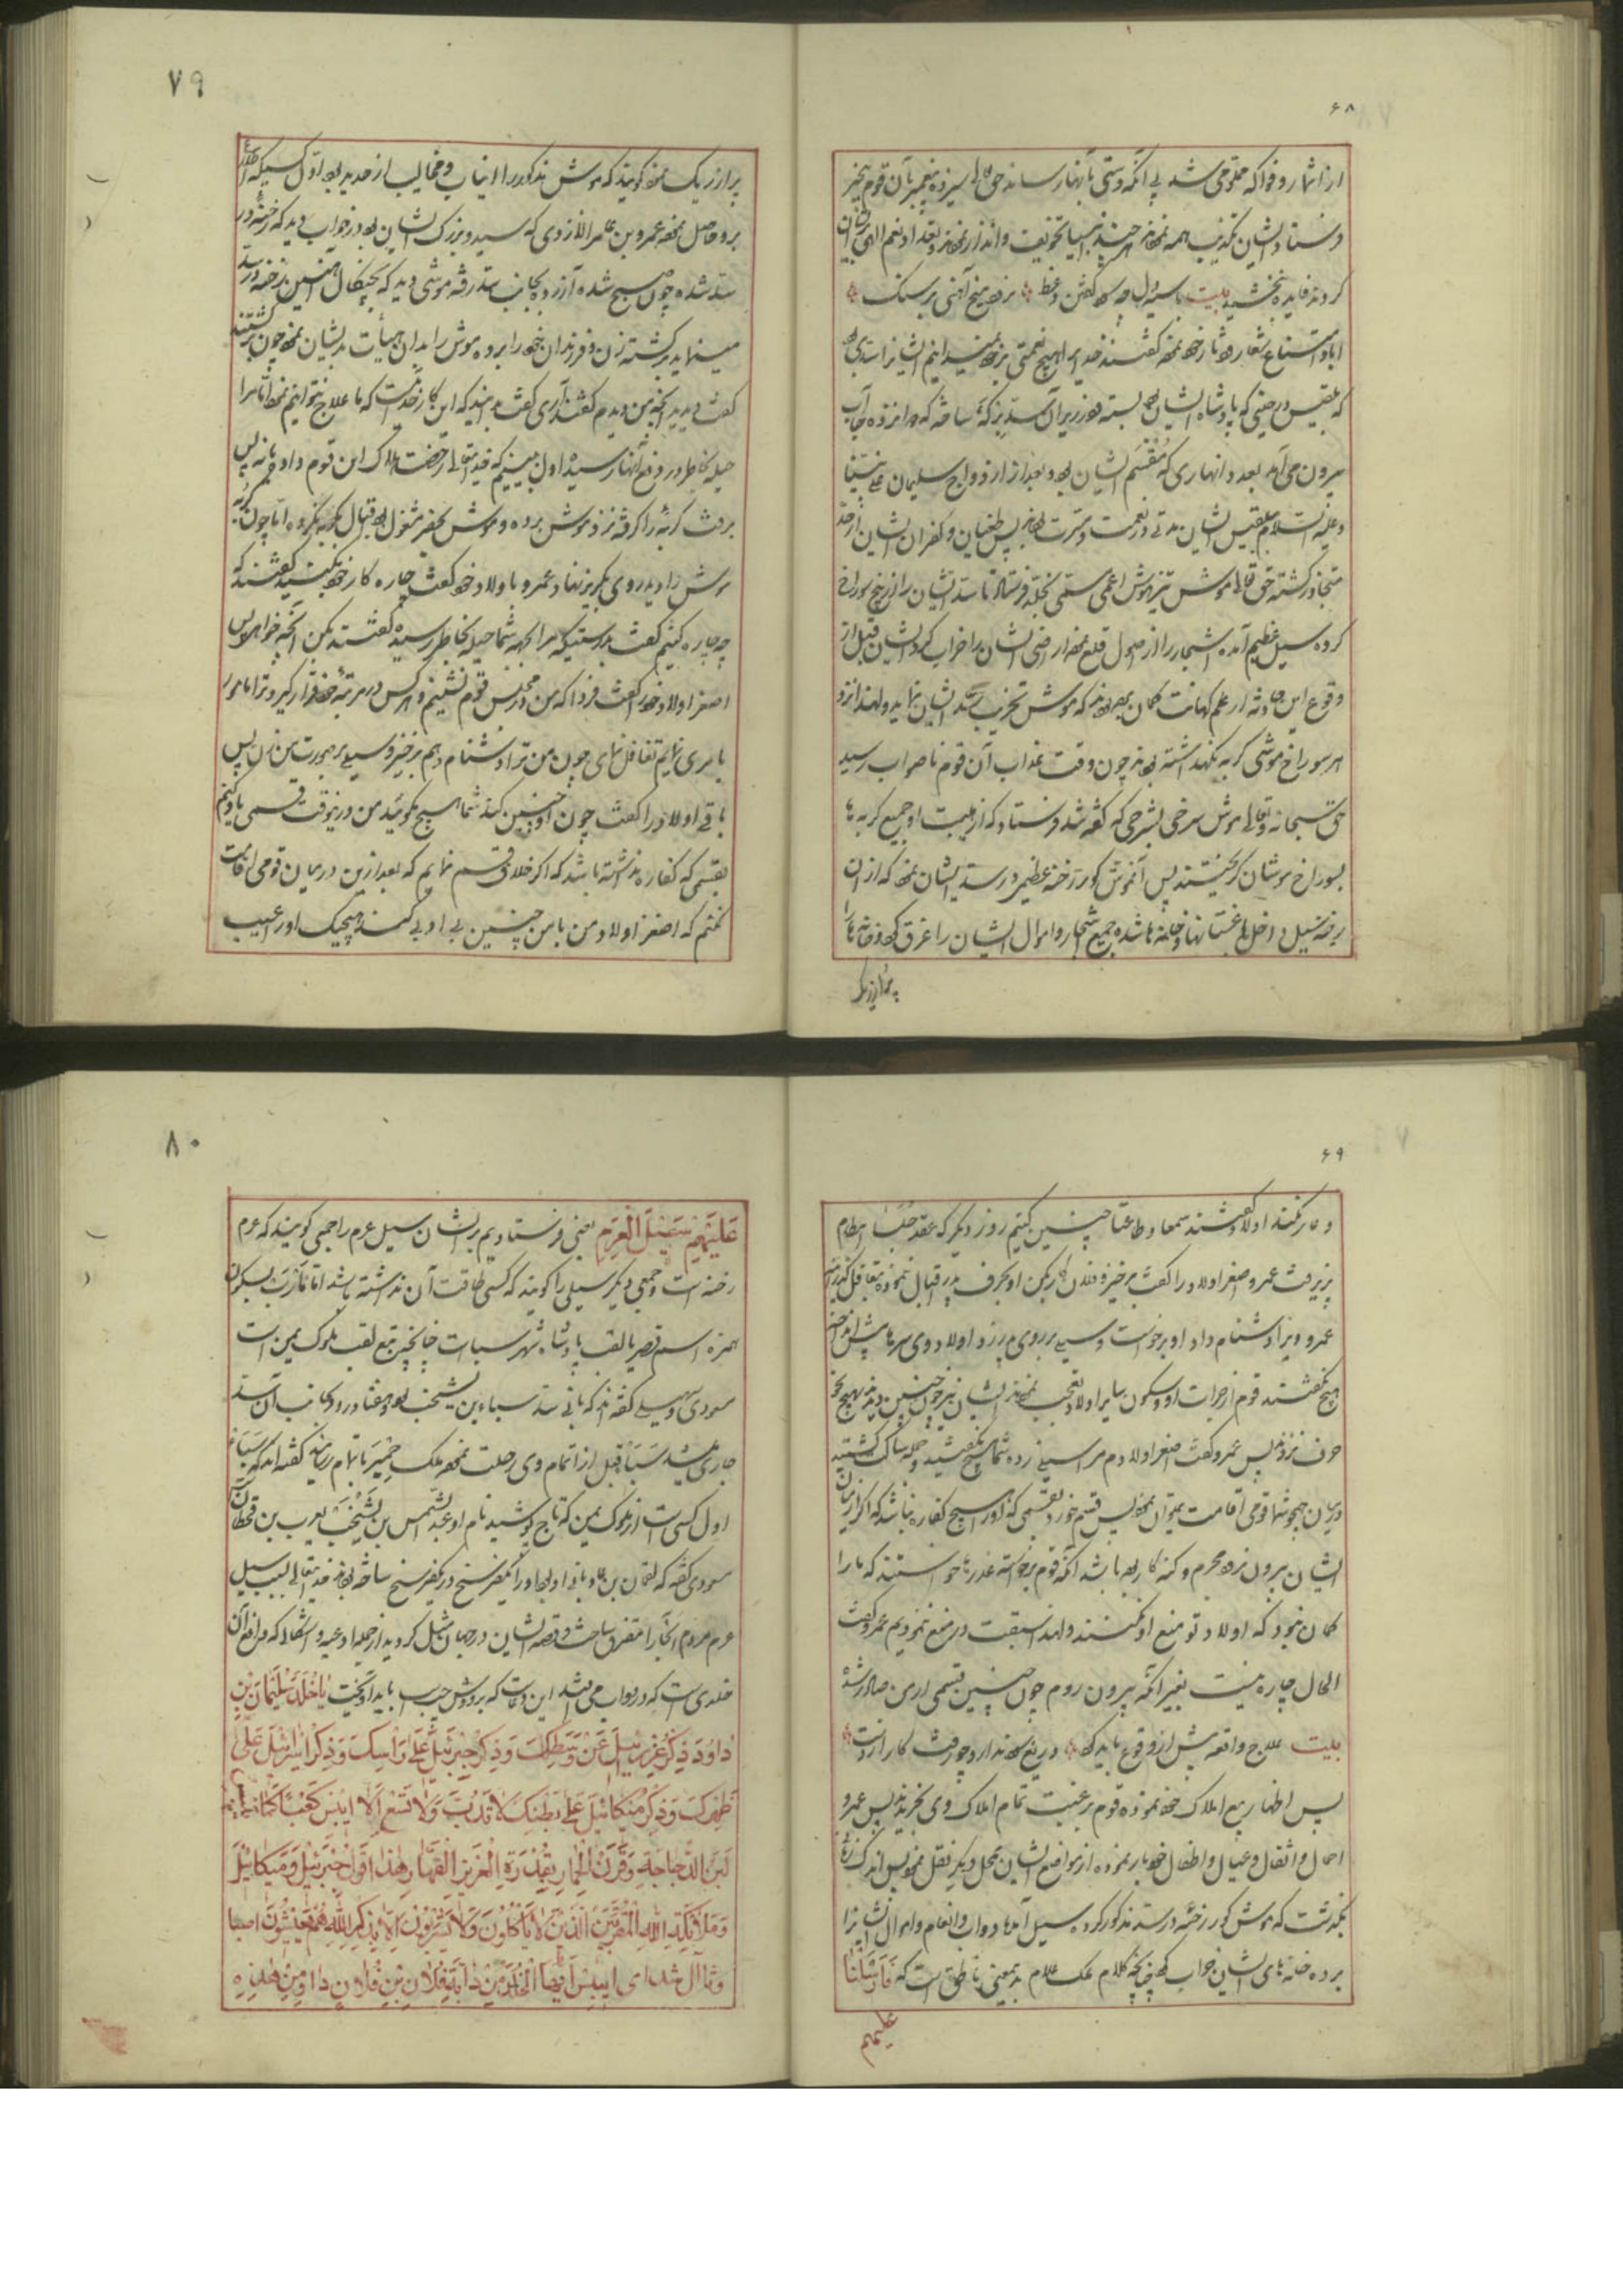 ۶۸
از اثمار و فواکه مملو می شد بی آنکه دستی بآنها رسانند حق تعالی سیزده پیغمبر بآن قوم بیخبر
فرستاد ایشان تکذیب همه نموده هر چند انبیا تخویف و انذار نموده و تعداد نعم الهی برایشان
کردند فایده نبخشید بیت با سیه دل چه سود گفتن وعظ نرود میخ آهنی بر سنگ
ابا و امتناع شعار و دثار خود نموده گفتند خدایرا هیچ نعمتی بر خود نمیدانیم ایشانرا سدی بود
که بلقیس در حینی که پادشاه ایشان بود بسته بود و زیر آن سد برکه ساخته که دوازده جا آب
بیرون می آمد بعدد انهاری که مقسم ایشان بود و بعد از ازدواج سلیمان علی نبینا
و علیه السلام بلقیس ایشان مدتی در نعمت و مسرت بودند پس طغیان و کفران ایشان از حد
متجاوز گشته حق تعالی موش تیز هوش اعمی مسمی بخلد فرستاد تا سد ایشان را از بیخ سوراخ
کرده سیل عظیم آمده اشجار را از اصول قلع نموده اراضی ایشان را خراب کرد ایشان قبل از
وقوع این حادثه از علم کهانت گمان برده بودند که موش تخریب سد ایشان نماید ولهذا نزد
هر سوراخ موشی گربه نگهداشته بودند چون وقت عذاب آن قوم ناصواب رسید
حق سبحانه و تعالی موش سرخی بشرحی که گفته شد فرستاد که از هیبت او جمیع گربه ها
بسوراخ موشان گریختند پس آنموش کور رخنه عظیم در سد ایشان نمود که از ان
رخنه سیل داخل باغستانها و خانه ها شده جمیع اشجار و اموال ایشان را غرق کرد و خانه ها را
پر از ریگ
۷۹
پر از ریگ نمود گویند که موش مذکور را انیاب و مخالب از حدید بود اول کسیکه اطلاع
برو حاصل نمود عمرو بن عامر الازدی که سید و بزرگ ایشان بود در خواب دید که رخنه در
سد شده چون صبح شده آزرده بجانب سد رفته موشی دید که بچنگال آهنین رخنه در سد
مینماید برگشته زن و فرزندان خود را برده موش را بدان هیأت بدیشان نمود چون برگشتند
گفت دیدید آنچه من دیدم گفتند آری گفت بدانید که این کار خداست که ما علاج نتوانیم نمود اما مرا
حیله بخاطر در دفع آنها رسیده اول ببینیم که خدایتعالی رخصت هلاک این قوم داده یا نه پس
برفت گربه را گرفته نزد موش برده و موش بحفر مشغول بود اقبال بگربه نکرده اما چون گربه
موش را دید روی بگریز نهاد عمرو با اولاد خود گفت چاره کار خود بکنید گفتند که
چه چاره کنیم گفت بدرستیکه مرا بجهه شما حیله بخاطر رسیده گفتند بکن آنچه خواهی پس
اصغر اولاد خود را گفت فردا که من در مجلس قوم نشینم و هر کس در مرتبه خود قرار گیرد ترا مامور
بامری نمایم تغافل نمای چون من ترا دشنام دهم برخیز و سیلی بر صورت من زن پس
باقی اولاد را گفت چون او چنین کند شما هیچ نگوئید من در ینوقت قسمی یاد کنم
بقسمی که کفاره نداشته باشد که اگر خلاف قسم نمایم که بعد ازین درمیان قومی اقامت
نکنم که اصغر اولاد من با من چنین بی ادبی کند و هیچیک او را عیب
۶۹
و عار نکنند اولاد گفتند سمعا و طاعتا چنین کنیم روز دیگر که عقد جلسا انتظام
پذیرفت عمرو اصغر اولاد را گفت برخیز و فلان کار بکن او بحرف پدر اقبال ننموده تغافل گذرانید
عمرو ویرا دشنام داد او برخواست و سیلی بر روی پدر زد اولاد وی سرها پیش انداخته
هیچ نگفتند قوم از جرات او و سکون سایر اولاد تعجب نمودند ایشان نیز چون چنین دیدند هیچ نحو
حرف نزدند پس عمرو گفت اصغر اولادم مرا سیلی زده شما هیچ نگفتید و جمله ساکت گشتید
درمیان همچو شما قومی اقامت نمیتوان نمود پس قسم خورد بقسمی که او را هیچ کفاره نباشد که اگر از میان
ایشان بیرون نرود مجرم و گنه کار بوده باشد آنگه قوم برخواسته عذرها خواستند که ما را
گمان نبود که اولاد تو منع او نکنند ولهذا سبقت در منع ننمودیم عمرو گفت
الحال چاره نیست بغیر آنکه بیرون روم چون چنین قسمی از من صادر شده
بیت علاج واقعه پیش از وقوع باید کرد دریغ سود ندارد چو رفت کار از دست
پس اظهار بیع املاک خود نموده قوم برغبت تمام املاک وی بخریدند پس عمرو
احمال و اثقال و عیال و اطفال خود بار نموده از مواضع ایشان بمحل دیگر نقل نمود پس اندک زمانی
نگذشت که موش کور رخنه در سد مذکور کرده سیل آمد دواب و انعام و اموال ایشانرا
برده خانه های ایشان خراب کرد چنانچه کلام ملک علام بدینمعنی ناطق است که فَاَرْسَلْنَا
علیهم
۸۰
عَلَيْهِمْ سَيْلَ الْعَرِمِ یعنی فرستادیم بر ایشان سیل عرم را جمعی گویند که عرم
رخنه است و جمعی دیگر سیلی را گویند که کسی طاقت آن نداشته باشد اما مأرب بسکون
همزه اسم قصر یا لقب پادشاه شهر سبا است چنانچه تبع لقب ملوک یمن است
مسعودی و سهیلی گفته اند که بانی سد سباء بن یشجب بود و هفتاد رود بجانب آن سد
جاری میشد سباء قبل از اتمام وی رحلت نمود ملک حمیر باتمام رسانید گفته اند که سباء
اول کسی است از ملوک یمن که تاج پوشید نام او عبد الشمس بن یشجب بن یعرب بن قحطان
مسعودی گفته که لقمان بن عاد بانی او بود او را یکفرسنخ در یکفرسنخ ساخته بود خدایتعالی بسبب سیل
عرم مردم آنجا را متفرق ساخت و قصه ایشان در جهان مثل گردید از جمله ادعیه و اشکال که دافع آن
خلدی است که در دواب می باشد این دعاست که بر دوش چپ باید آویخت يَا خُلْدُ سُلَيْمَانُ بْنُ
دَاوُدَ ذِكْرُ عِزْرَئِيلَ عَنْ وَسَطِكَ وَذِكْرُ جِبْرَئِيلَ عَلَى رَاسِكَ وَذِكْرُ اِسْرَافِيلَ عَلَى
ظَهْرِكَ وَذِكْرُ مِيكَائِيلَ عَلَى بَطْنِكَ لَا تَدُبُّ وَلَا تَسْعَ اِلَّا اَيْبَسْ كَمَا
لَبَنُ الدَّجَاجَةِ وَقَرْنُ الْحِمَارِ بِقُدْرَةِ الْعَزِيزِ الْقَهَّارِ هٰذَا قَوْلُ جِبْرَئِيلَ وَمِيكَائِيلَ
وَمَلَائِكَةِ اللهِ الْمُقَرَّبِينَ الَّذِينَ لَا يَأْكُلُونَ وَلَا يَشْرَبُونَ اِلَّا بِذِكْرِ اللهِ هُمْ يَعِيشُونَ اصبا
وثا ال شدای اَيْبِسْ اَيُّهَا الْخُلْدُ مِنْ دَابَّةِ فُلَانِ بْنِ فُلَانٍ وَمِنْ هٰذِهِ